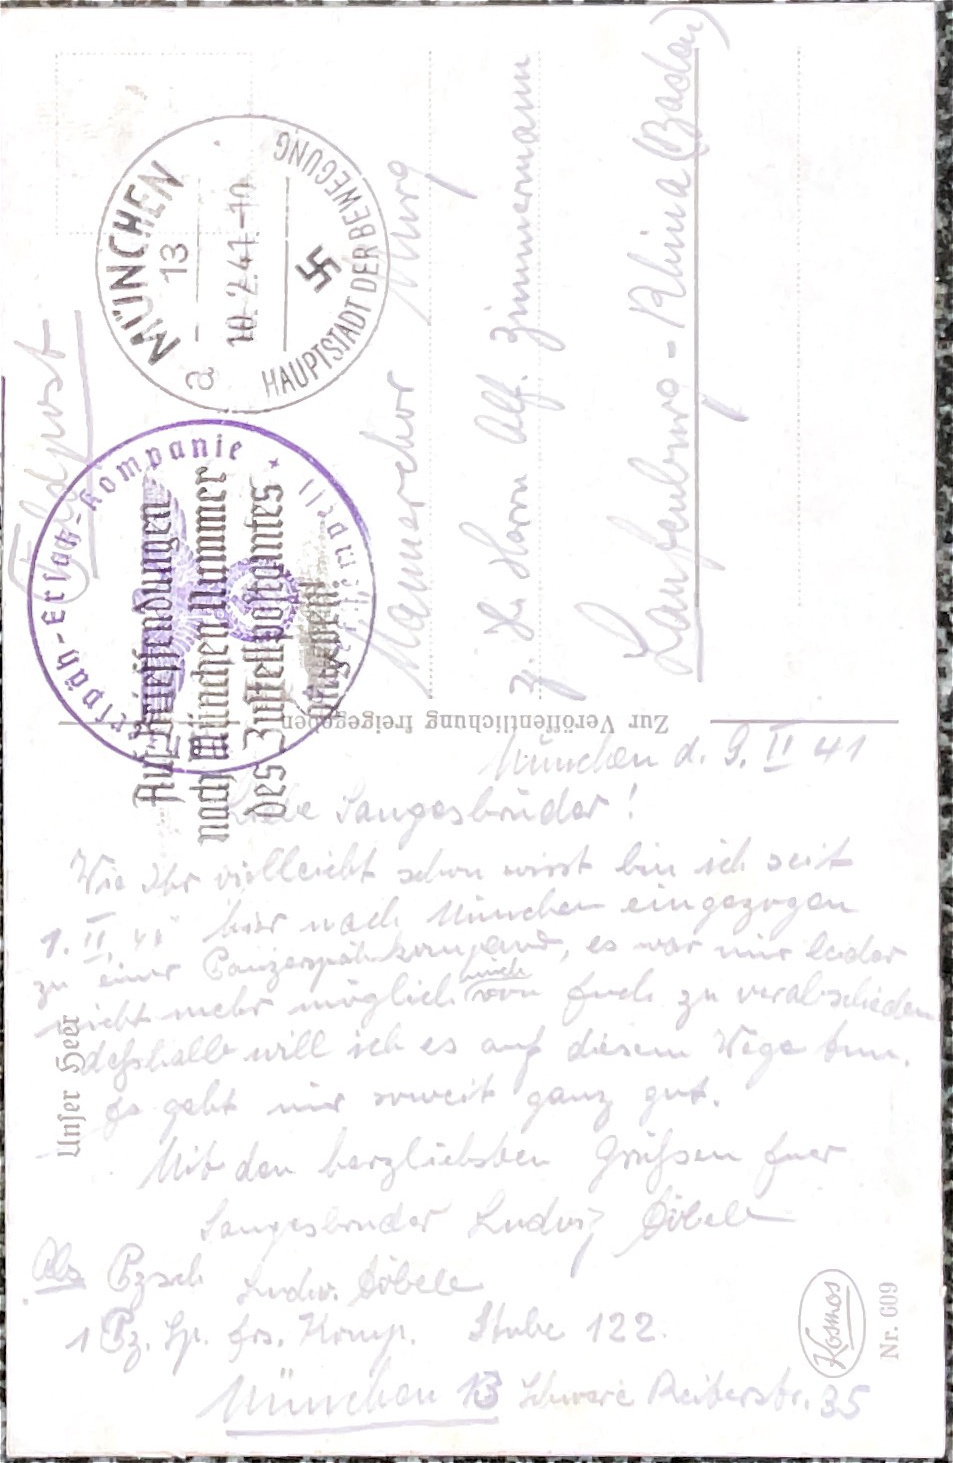 Feldpost
MÜNCHEN
13
a
10.2.41.-10
HAUPTSTADT DER BEWEGUNG
Kompanie
Auf Briefsendungen
nach München Nummer
des Zustellpostamtes
angeben!
Männerchor Murg
z. H. Herrn Alf. Zimmermann
Laufenburg-Rhina (Baden)
Zur Veröffentlichung freigegeben
München d. 9. II 41
Liebe Sangesbrüder!
Wie Ihr villeicht schon wisst bin ich seit
1. II. 41 hier nach München eingezogen
zu einer Panzerspähkompanie, es war mir leider
nicht mehr möglich mich von Euch zu verabschieden
deßhalb will ich es auf diesem Wege tun.
Es geht mir soweit ganz gut.
Mit den herzliebsten Grüßen Euer
Sangesbruder Ludwig Döbele
Abs Pzsch Ludw. Döbele
1 Pz. Sp. Ers. Komp. Stube 122.
München 13 Schwere Reiterstr. 35
Unser Heer
Kosmos
Nr. 609